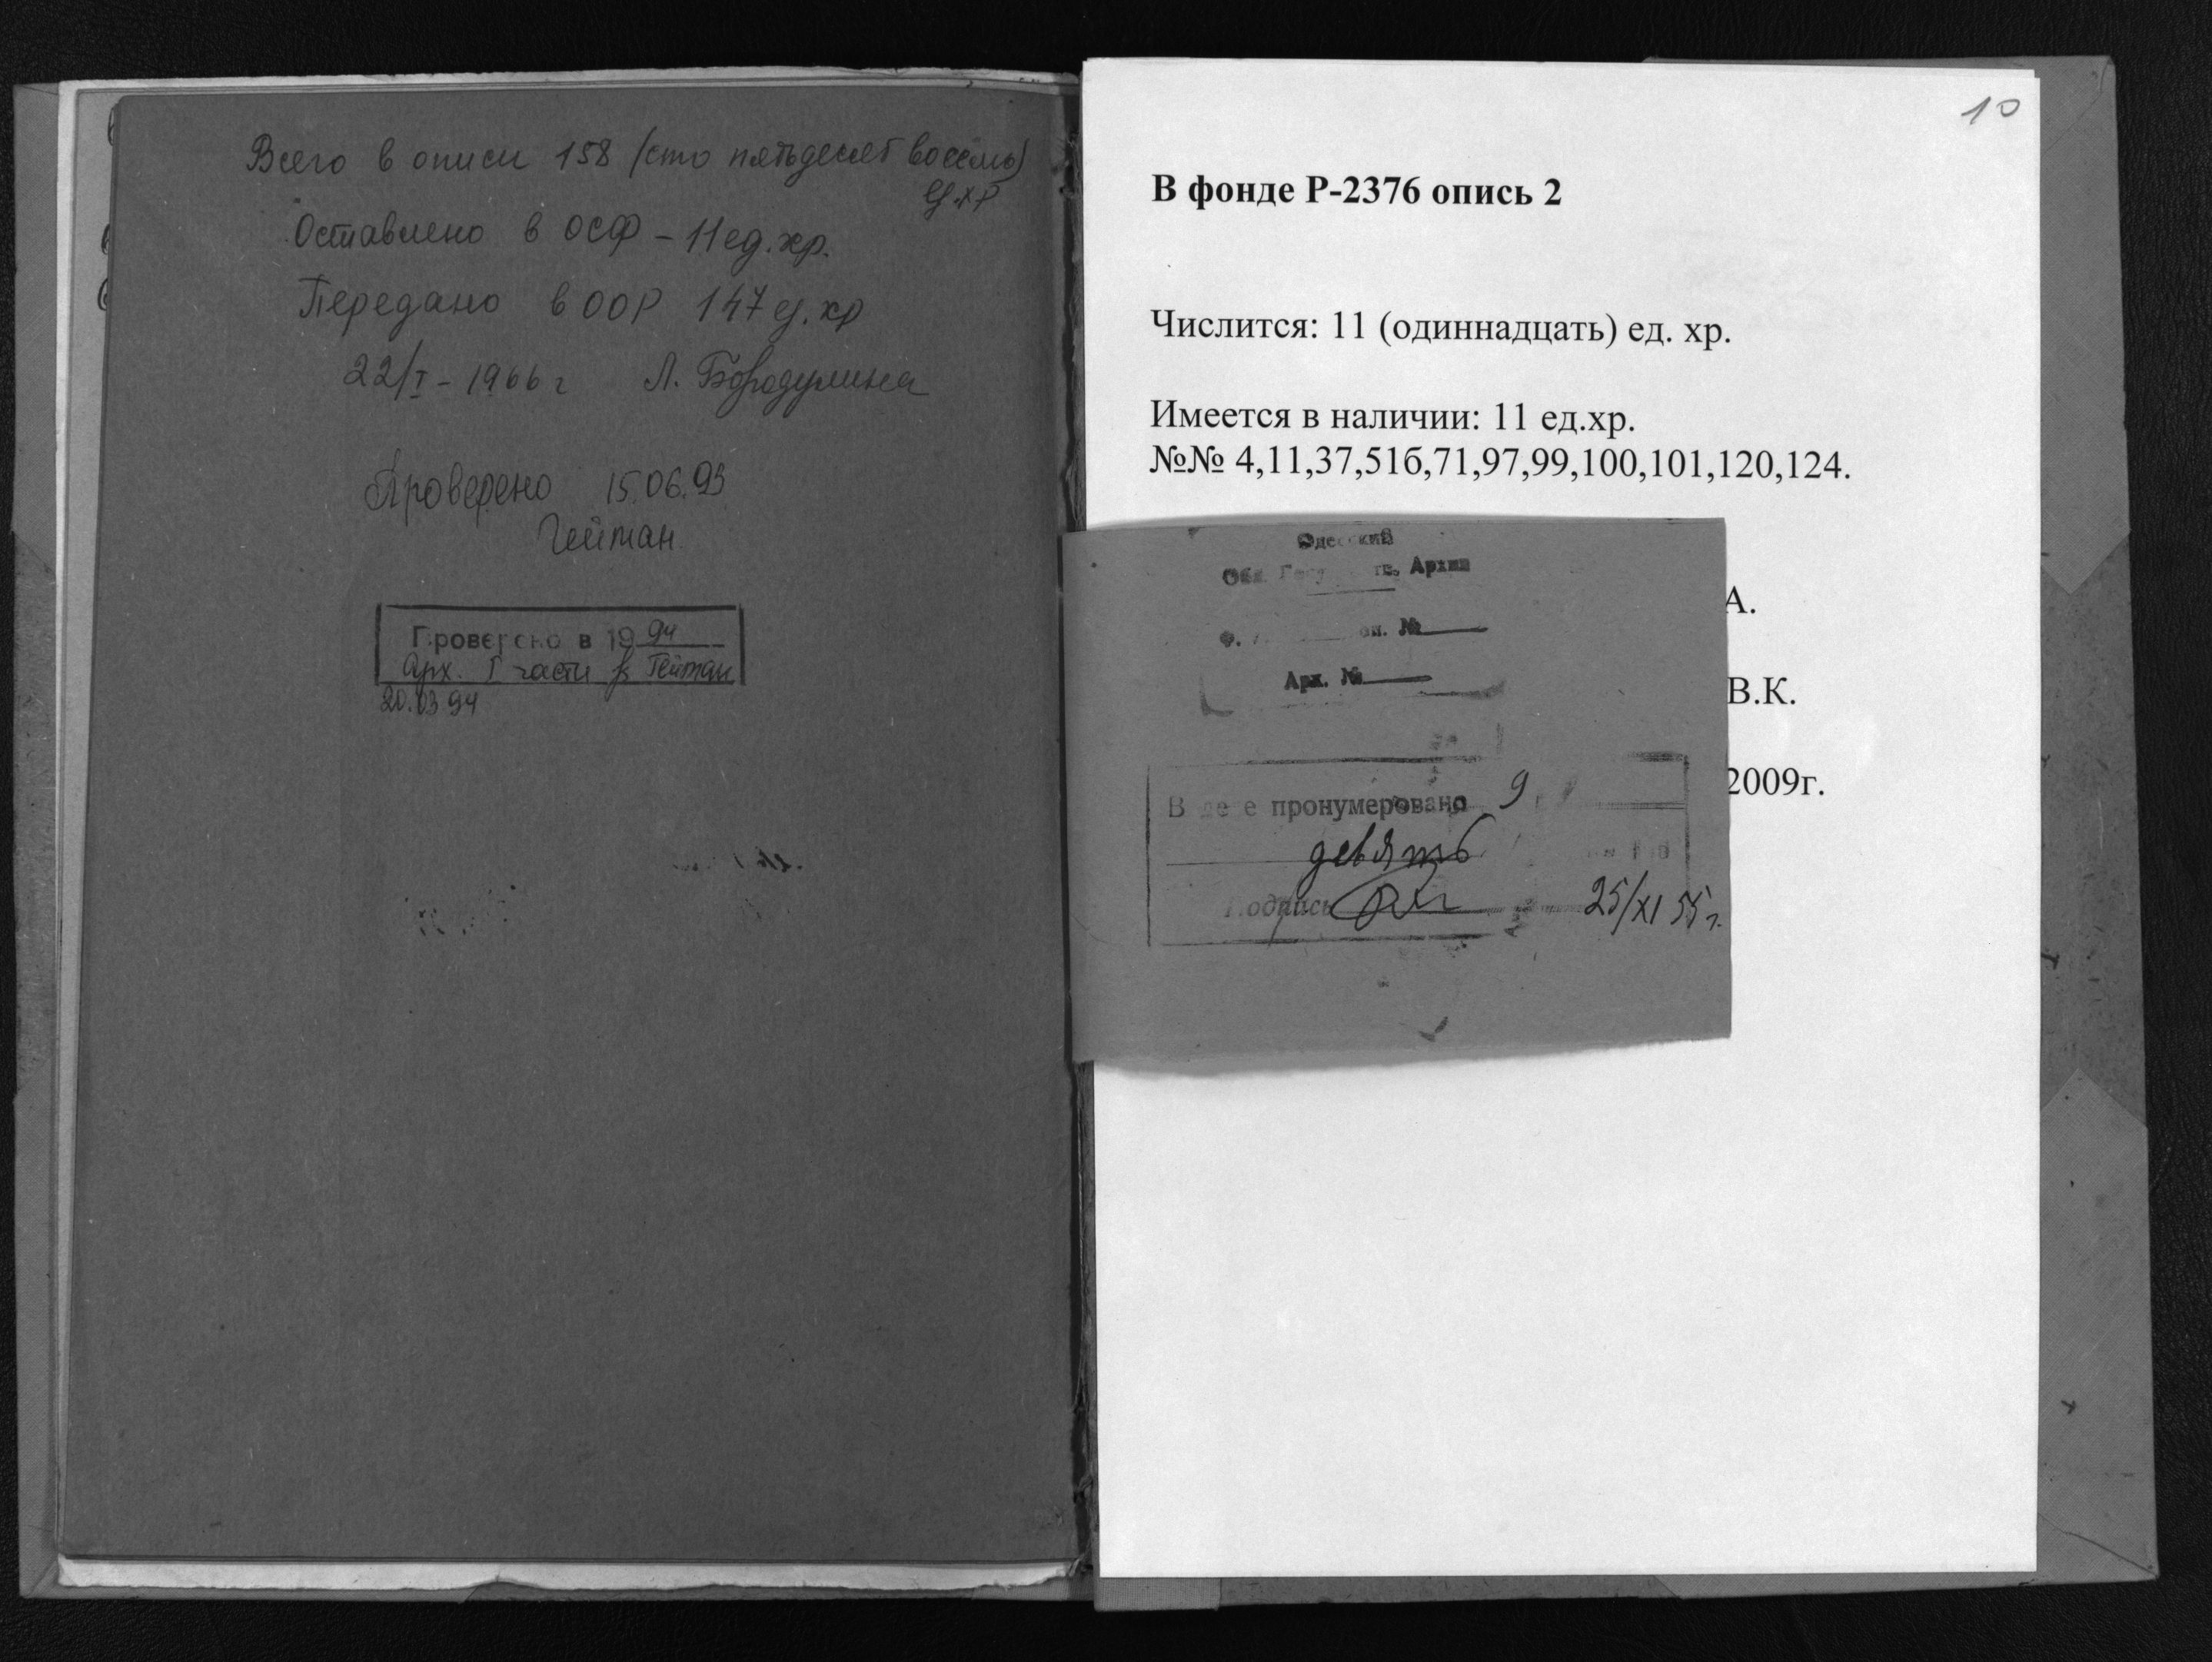 Всего в описи 158 (сто пятьдесят восемь)
ед.хр
Оставлено в ОСФ – 11 ед.хр.
Передано в ООР 147 ед.хр
22/I – 1966 г Л. Бородулина
Проверено 15.06.93
Гейтан
Проверено в 1994
Арх. I части Гейтан
20.03 94
10
В фонде Р-2376 опись 2
Числится: 11 (одиннадцать) ед. хр.
Имеется в наличии: 11 ед.хр.
№№ 4,11,37,51б,71,97,99,100,101,120,124.
А.
В.К.
2009г.
Одесский
Обл. Архив
Ф. оп. №
Арх. №
В деле пронумеровано 9
девять
Подпись 25/XI 55 г.